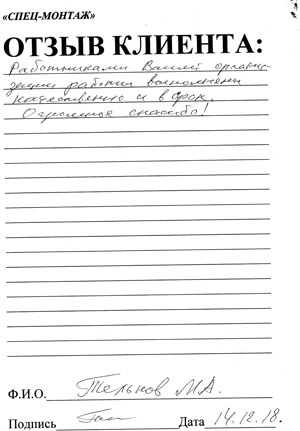 «СПЕЦ-МОНТАЖ»
ОТЗЫВ КЛИЕНТА:
Работниками Вашей органи-
зации работы выполнены
качественно и в срок.
Огромное спасибо!
Ф.И.О. Тельнов М.А.
Подпись Дата 14.12.18.